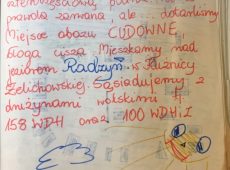 prawda zamana ale dotarliśmy
Miejsce obozu CUDOWNE
błoga cisza Mieszkamy nad
jeziorem Radzyń w Puszczy
Żelichowskiej. Sąsiadujemy z
drużynami wolskimi tj.
158 WDH oraz 100 WDHiZ